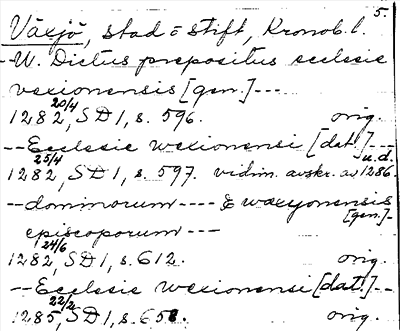 5.
Växjö, stad o stift, Kronob. l.
- W. Dictus prepositus ecclesie
vexionensis [gen.] ---
1282 20/4, SD 1, s. 596. orig.
-- Ecclesie wexionensi [dat.] ---
1282 25/4, SD 1, s. 597. vidim. avskr. av 1286 u.d.
-- dominorum ---- & waxyonensis
[gen.] -
episcoporum ---
1282 24/6, SD 1, s. 612. orig.
-- Ecclesie wexionensi [dat.] --
1285 22/2, SD 1, s. orig.